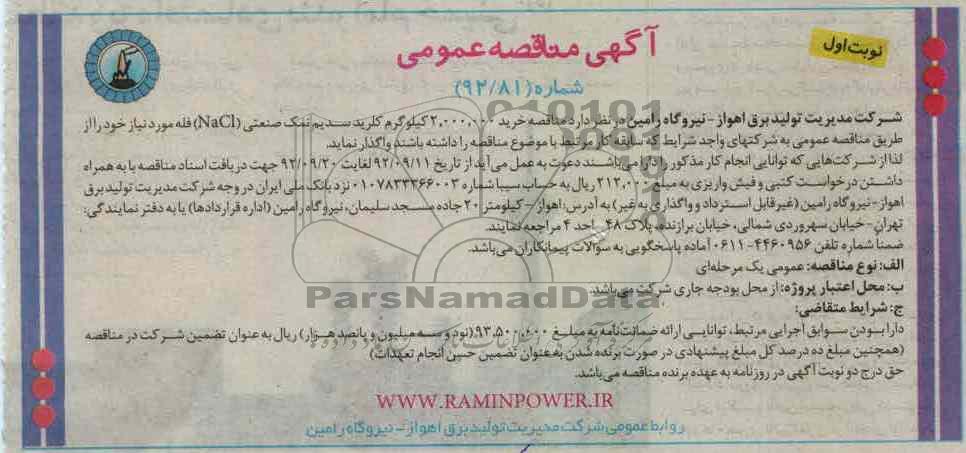 نوبت اول
آگهی مناقصه عمومی
شماره (۹۲/۸۱)
شرکت مدیریت تولید برق اهواز - نیروگاه رامین در نظر دارد مناقصه خرید ۲,۰۰۰,۰۰۰ کیلوگرم کلرید سدیم نمک صنعتی (NaCl) فله مورد نیاز خود را از
طریق مناقصه عمومی به شرکتهای واجد شرایط که سابقه کار مرتبط با موضوع مناقصه را داشته باشند واگذار نماید.
لذا از شرکت‌هایی که توانایی انجام کار مذکور را دارا می‌باشند دعوت به عمل می‌آید از تاریخ ۹۲/۰۹/۱۱ لغایت ۹۲/۰۹/۲۰ جهت دریافت اسناد مناقصه با به همراه
داشتن درخواست کتبی و فیش واریزی به مبلغ ۲۱۲,۰۰۰ ریال به حساب سیبا شماره ۰۱۰۷۸۳۳۳۶۶۰۰۳ نزد بانک ملی ایران در وجه شرکت مدیریت تولید برق
اهواز - نیروگاه رامین (غیر قابل استرداد و واگذاری به غیر) به آدرس: اهواز - کیلومتر ۲۰ جاده مسجد سلیمان، نیروگاه رامین (اداره قراردادها) یا به دفتر نمایندگی:
تهران - خیابان سهروردی شمالی، خیابان برازنده، پلاک ۴۸ واحد ۴ مراجعه نمایند.
ضمناً شماره تلفن ۴۴۶۰۹۵۶-۰۶۱۱ آماده پاسخگویی به سوالات پیمانکاران می‌باشد.
الف: نوع مناقصه: عمومی یک مرحله‌ای
ب: محل اعتبار پروژه: از محل بودجه جاری شرکت می‌باشد.
ج: شرایط متقاضی:
دارا بودن سوابق اجرایی مرتبط، توانایی ارائه ضمانت‌نامه به مبلغ ۹۳,۵۰۰,۰۰۰ (نود و سه میلیون و پانصد هزار) ریال به عنوان تضمین شرکت در مناقصه
(همچنین مبلغ ده درصد کل مبلغ پیشنهادی در صورت برنده شدن به عنوان تضمین حسن انجام تعهدات)
حق درج دو نوبت آگهی در روزنامه به عهده برنده مناقصه می‌باشد.
WWW.RAMINPOWER.IR
روابط عمومی شرکت مدیریت تولید برق اهواز - نیروگاه رامین
ParsNamadData